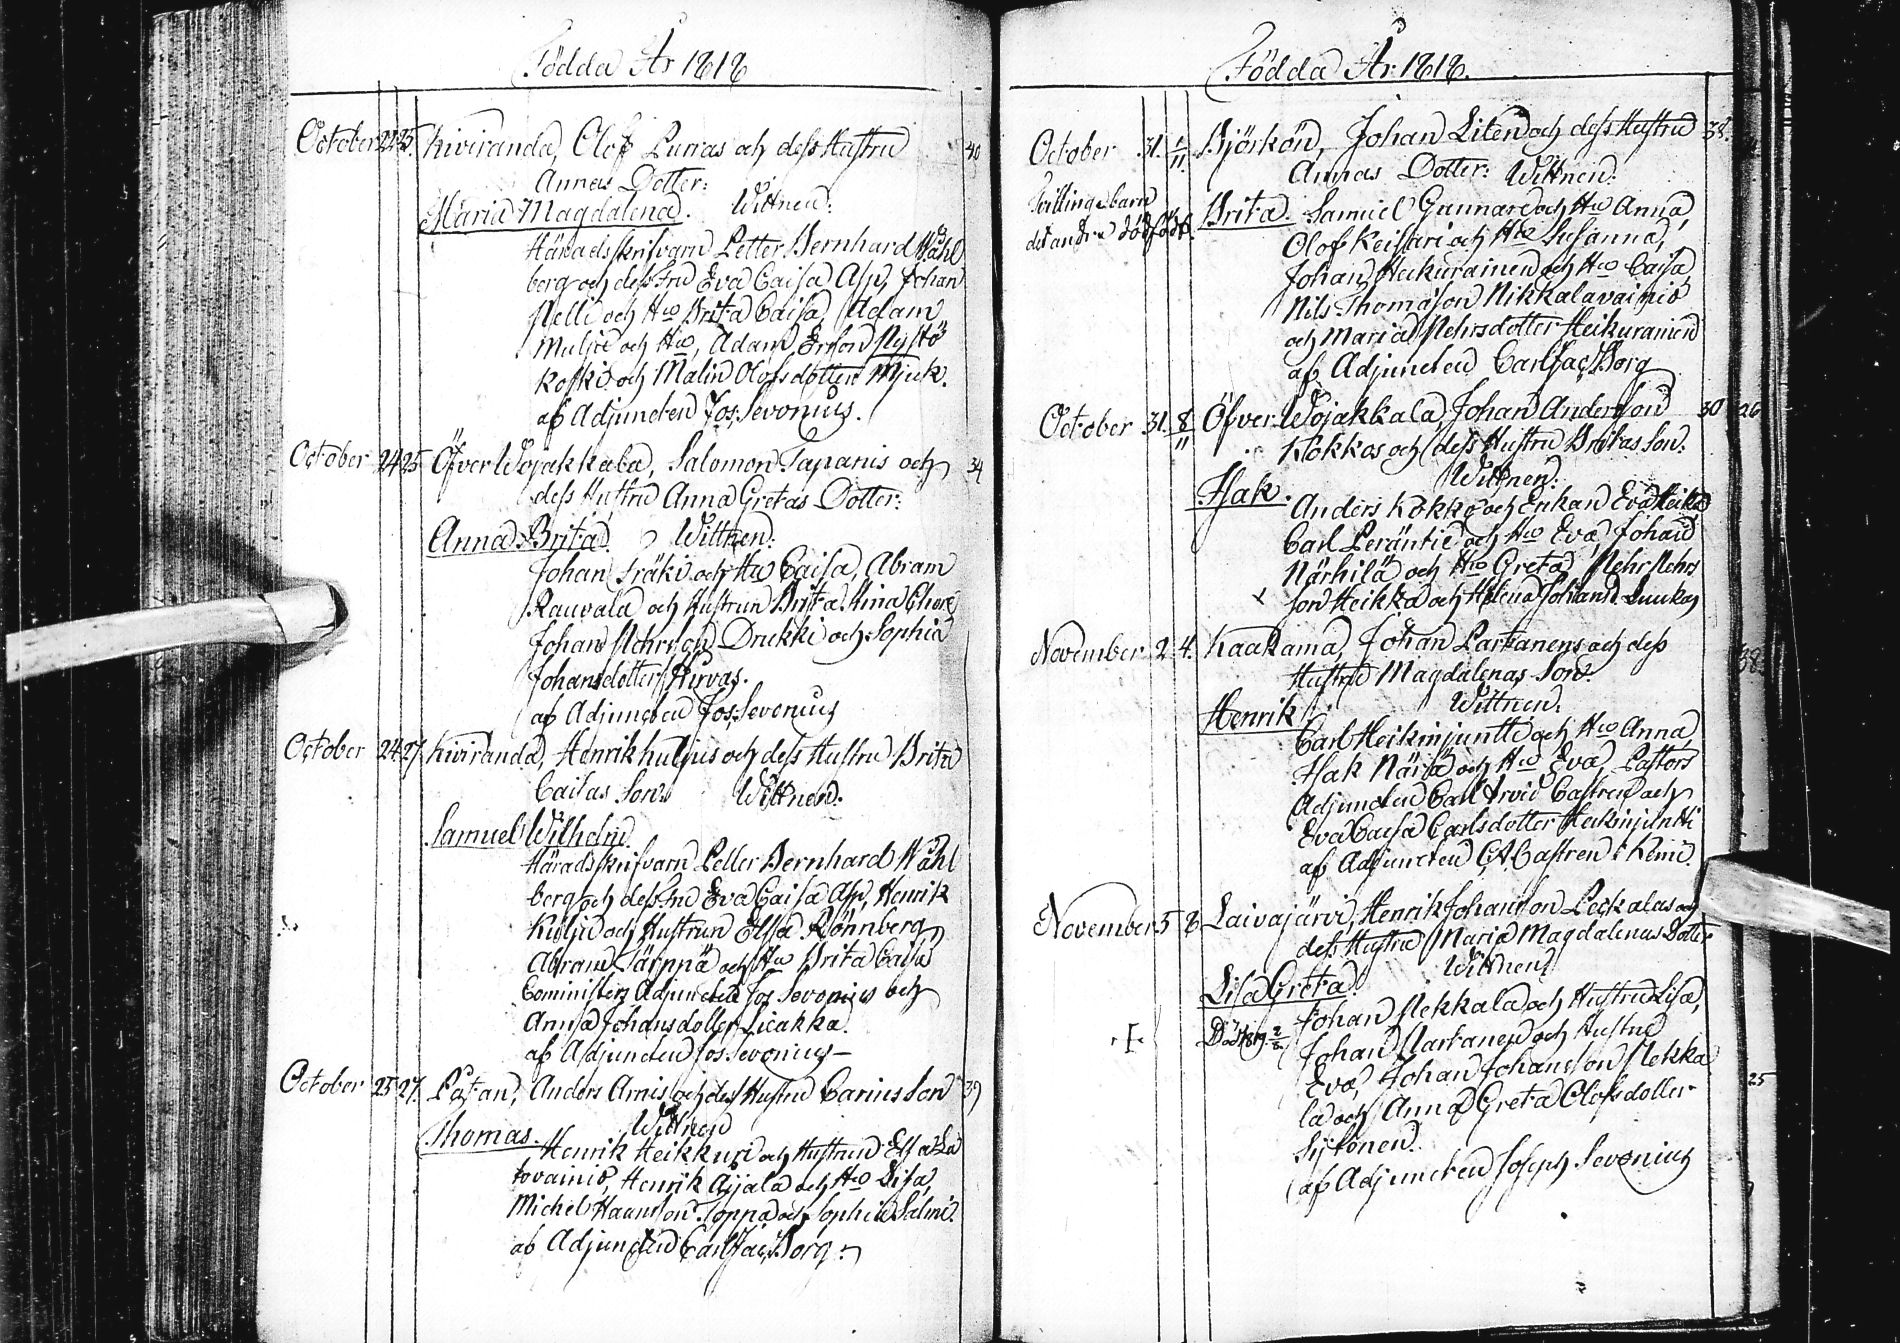 Födda År 1818
October 22 25. Kiviranda, Olof Purras och dess Hustru 40
Annas Dotter:
Maria Magdalena. Wittnen:
Häradsskrifvarn Petter Bernhard Wahl
berg och dess Fru Eva Caisa Asp, Johan
Nelli och H:u Brita Caisa, Adam
Mulju och H:u, Adam Erson Nystö
koski och Malin Olofsdotter Mjuk.
af Adjuncten Jos: Sevonius.
October 24 25 Öfver Wojakkala, Salomon Tapanis och 34
dess Hustru Anna Gretas Dotter:
Anna Brita. Wittnen:
Johan Fräki och H:u Caisa, Abram
Rauvala och Hustrun Brita Stina
Johan Drekki och Sophia
Johansdotter Kurvas.
af Adjuncten Jos: Sevonius
October 24. 27. Kiviranda, Henrik Kuljus och dess Hustru Brita
Caisas Son. Wittnen:
Samuel Wilhelm.
Häradsskrifvarn Petter Bernhard Wahl
berg och dess Fru Eva Caisa Asp, Henrik
Kulju och Hustrun Elsa Rönnberg,
Abram Särppä och H:u Brita Caisa
Cominister Adjuncten Jos Sevonius och
Anna Johansdotter Licakka.
af Adjuncten Jos: Sevonius—
October 25 27. Anders Arnis och dess Hustru Carins Son 39
Wittnen
Thomas. Henrik Heikkuri och Hustrun Elsa La
tovainio, Henrik Ajjala och H:u Lisa,
Michel Hannsson Toppa och Sophia Salmi.
af Adjuncten Carl Jac: Borg.
Födda År 1818.
October 31. 1/11. Björkön, Johan Liten och dess Hustru 38.
Annas Dotter: Wittnen:
Tvillingebarn
det andra dödfödt.
Brita. Samuel Gunnare och H:u Anna,
Olof Keisari och H:u Susanna,
Johan Heikurainen och H:u Caisa,
Nils Thomasson Nikkalavainio
och Maria Nehrsdotter Heikurainen
af Adjuncten Carl Jac: Borg
October 31. 8/11 Öfver Wojakkala, Johan Andersson 30 26
Kokkos och dess Hustru Britas Son.
Wittnen:
Isak. Anders Kokko och Enkan Eva Heikka
Carl Peräntie och H:u Eva, Johan
Närhilä och H:u Greta, Nehr Nehrs
son Heikka och Helena Johansd. Luukas
November 2 4. Kaakama, Johan Partanens och dess 38
Hustru Magdalenas Son.
Wittnen:
Henrik. Carl Heikinjuntti och H:u Anna,
Isak Närä och H:u Eva, Pastors
Adjuncten Carl Arvid Castren och
Eva Caisa Carlsdotter Heikinjuntti
af Adjuncten C: A Castren i Kemi.
November 5 8 Laivajärvi, Henrik Johansson Peckalas och
dess Hustru Maria Magdalenas Dotter
Wittnen:
Lisa Greta. Johan Nekkala och Hustru Lisa,
Död 1819 2/2 Johan Martanen och Hustru
Eva, Johan Johansson Nekka 25
la och Anna Greta Olofsdotter
Sytönen.
af Adjuncten Joseph Sevonius